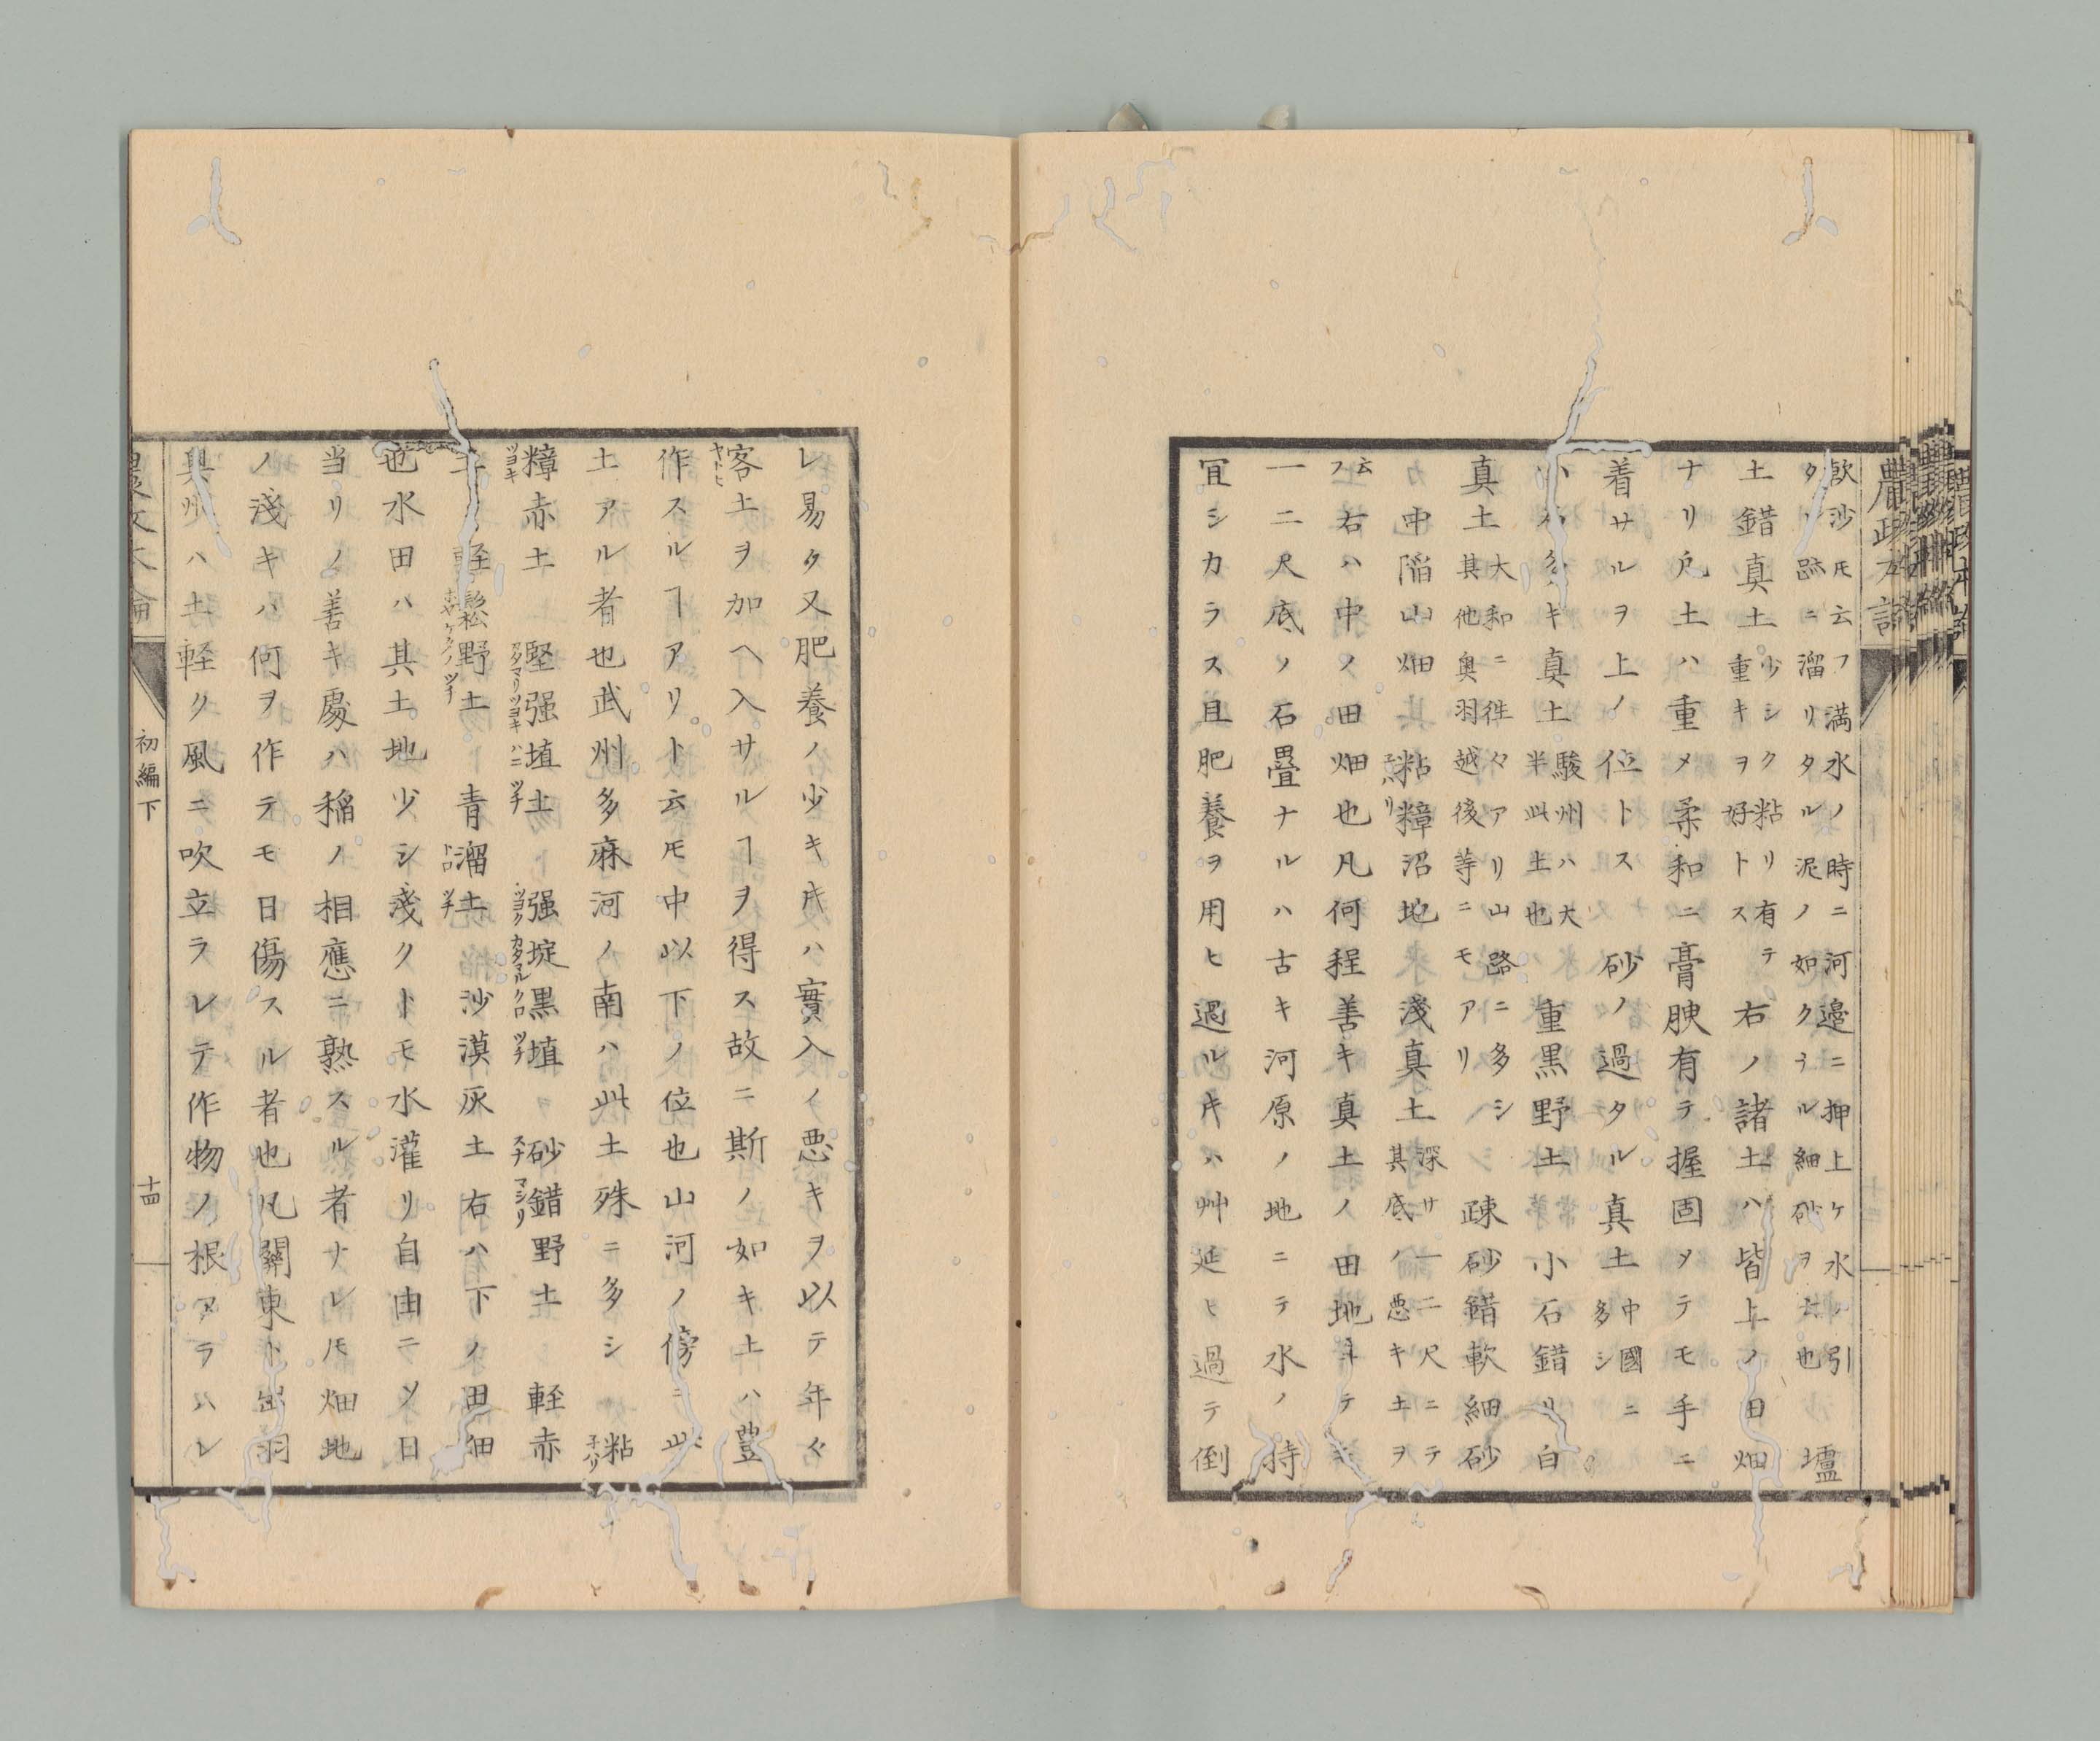 農政本論
歃沙𪜈云フ満水ノ時ニ河邉ニ押上ケ水ノ引
タル跡ニ溜リタル泥ノ如クナル細砂ヲ云也 壚
土錯真土 少シク粘リ有テ
重キヲ好トス 右ノ諸土ハ皆上ノ田畑
ナリ凢土ハ重メ柔和ニ膏腴有テ握固メテモ手ニ
着サルヲ上ノ位トス 砂ノ過タル真土 中國ニ
多シ
多キ真土 駿州ハ大
半此土也 重黒野土 小石錯リ白
真土 大和ニ徃々アリ山路ニ多シ
其他奥羽越後等ニモアリ 疎砂錯軟細砂
中陥山畑 粘糠沼地 淺真土 深サ一二尺ニテ
其底ノ悪キ土ヲ
云フ 右ハ中ノ田畑也凡何程善キ真土ノ田地ニテモ
一二尺底ノ石畳ナルハ古キ河原ノ地ニテ水ノ持
宜シカラス且肥養ヲ用ヒ過ルキハ艸延ヒ過テ倒
レ易タ又肥養ノ少キキハ實入ノ悪キヲ以テ年々
客土ヲ加へ入サルヿヲ得ス故ニ斯ノ如キ上ハ豊
作スルヿアリト云𪜈中以下ノ位也山河ノ傍ニ此
土アル者也武州多麻河ノ南ハ此土殊ニ多シ 粘
糠赤土 堅强埴土 强埞黒埴 砂錯野土 軽赤
土 軽鬆野土 青溜土 沙漠灰土右ハ下ノ田畑
也水田ハ其土地少シ淺クトモ水灌リ自由ニソ日
当リノ善キ處ハ稲ノ相應ニ熟スル者ナレ𪜈畑地
ノ淺キハ何ヲ作テモ日傷スル者也凡關東ト出羽
奥州ハ土軽ク風ニ吹立ラレテ作物ノ根アラハレ
初編下
十四